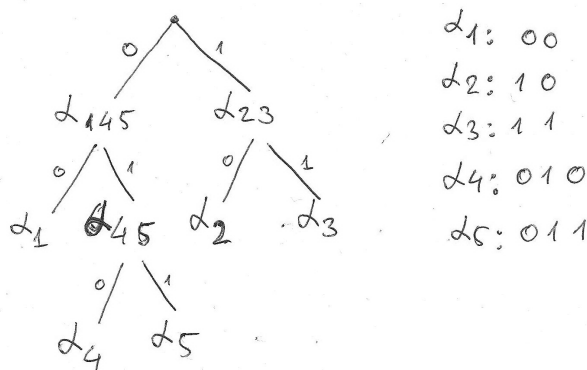 0 1
α145 α23
0 1 0 1
α1 α45 α2 α3
0 1
α4 α5
α1: 00
α2: 10
α3: 11
α4: 010
α5: 011